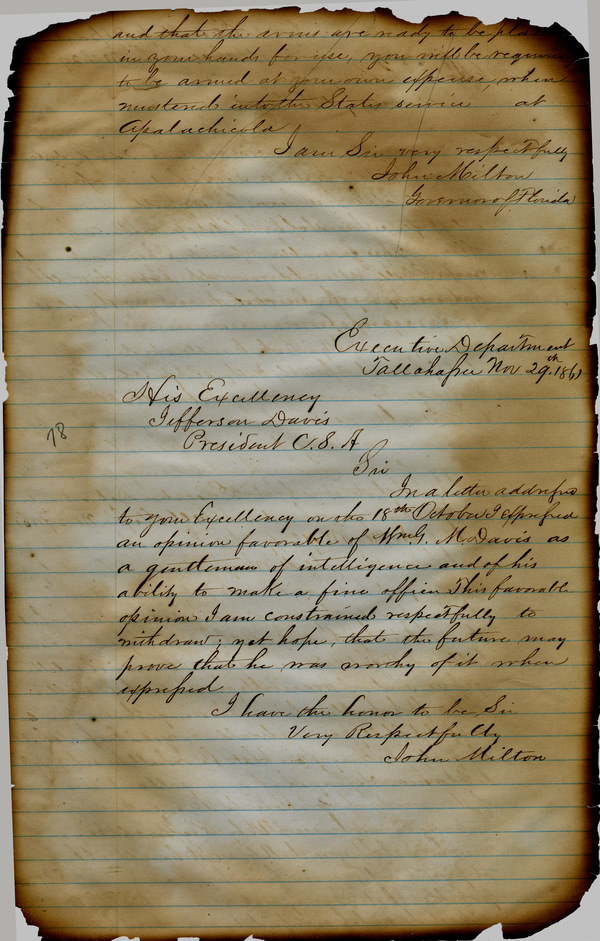 and that the arms are ready to be
in your hands for use, you will be
to be armed at your own expense, when
mustered into the States service at
Apalachicola
I am Sir very respectfully
John Milton
Governor of Florida
Executive Department
Tallahassee Nov 29th 1861
His Excellency
Jefferson Davis
President C. S. A
78
Sir
In a letter addressed
to your Excellency on the 18th October I expressed
an opinion favorable of Wm G. M. Davis as
a gentleman of intelligence and of his
ability to make a fine officer This favorable
opinion I am constrained respectfully to
withdraw; yet hope, that the future may
prove that he was worthy of it when
expressed
I have the honor to be, Sir
Very Respectfully
John Milton